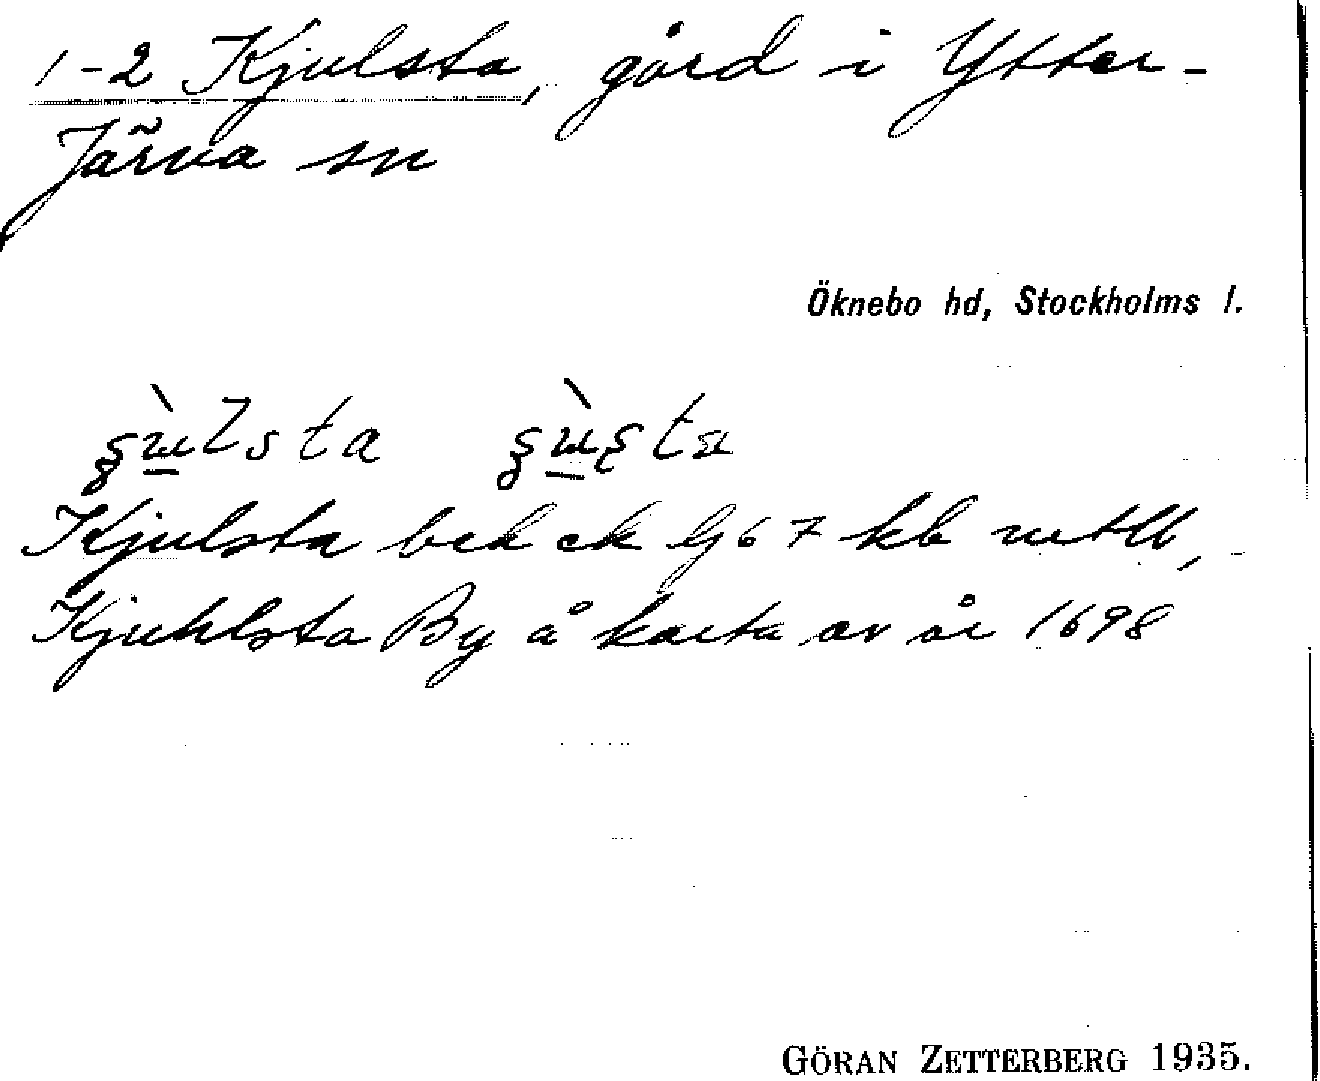 1-2 Kjulsta, gård i Ytter-
Järna sn
Öknebo hd, Stockholms l.
Kjulsta bek ek G 67 kb mtll,
Kjuhlsta By å karta av år 1698
GÖRAN ZETTERBERG 1935.